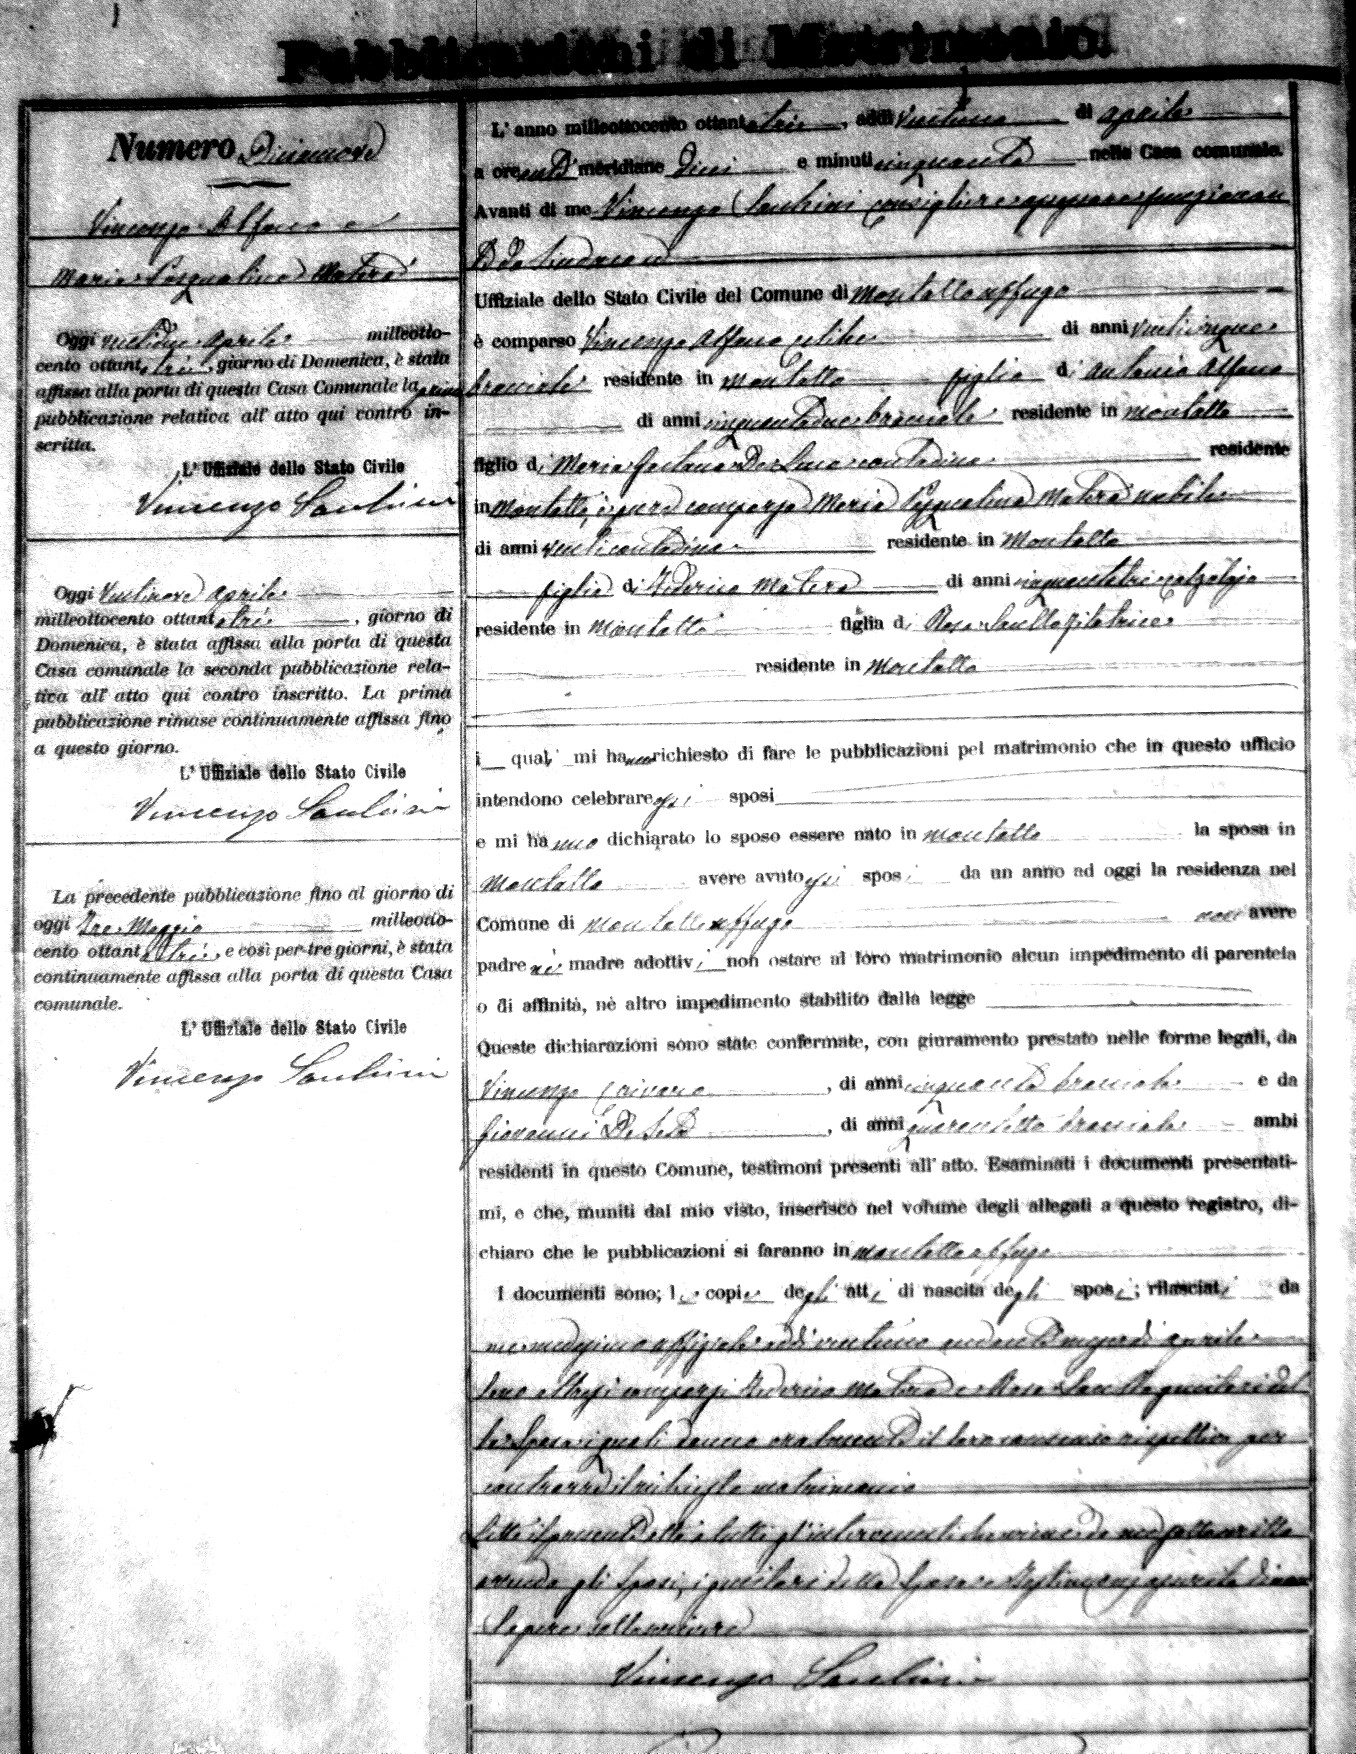 Pubblicazioni di Matrimonio.
Numero Diciannove
Vincenzo Alfano e
Maria Pasqualina Matera
Oggi ventidue Aprile milleotto-
cento ottantatrè, giorno di Domenica, è stata
affissa alla porta di questa Casa Comunale la prima
pubblicazione relativa all' atto qui contro in-
scritta.
L' Uffiziale dello Stato Civile
Vincenzo
Oggi Ventinove aprile
milleottocento ottantatrè, giorno di
Domenica, è stata affissa alla porta di questa
Casa comunale la seconda pubblicazione rela-
tiva all' atto qui contro inscritto. La prima
pubblicazione rimase continuamente affissa fino
a questo giorno.
L' Uffiziale dello Stato Civile
Vincenzo
La precedente pubblicazione fino al giorno di
oggi Tre Maggio milleotto-
cento ottantatrè, e così per tre giorni, è stata
continuamente affissa alla porta di questa Casa
comunale.
L' Uffiziale dello Stato Civile
Vincenzo
L' anno milleottocento ottantatrè, addì ventuno di aprile
a ore anti meridiane dieci e minuti cinquanta nella Casa comunale.
Avanti di me Vincenzo Consigliere funzionan
te da Sindaco
Uffiziale dello Stato Civile del Comune di Montalto uffugo
è comparso Vincenzo Alfano celibe di anni venticinque
bracciale residente in Montalto figlio di Antonio Alfano
di anni cinquantadue bracciale residente in Montalto
figlio di Maria Gaetana De Luca contadina residente
in Montalto, è pure comparsa Maria Pasqualina Matera nubile
di anni venti contadina residente in Montalto
figlia di Federico Matera di anni cinquantatre calzolajo
residente in Montalto figlia di Rosa filatrice
residente in Montalto
i quali mi hanno richiesto di fare le pubblicazioni pel matrimonio che in questo ufficio
intendono celebrare essi sposi
e mi hanno dichiarato lo sposo essere nato in Montalto la sposa in
Montalto avere avuto essi sposi da un anno ad oggi la residenza nel
Comune di Montalto uffugo non avere
padre nè madre adottivi non ostare al loro matrimonio alcun impedimento di parentela
o di affinità, nè altro impedimento stabilito dalla legge
Queste dichiarazioni sono state confermate, con giuramento prestato nelle forme legali, da
Vincenzo, di anni cinquanta bracciale e da
Giovanni De Seta, di anni quarantotto bracciale ambi
residenti in questo Comune, testimoni presenti all' atto. Esaminati i documenti presentati-
mi, e che, muniti dal mio visto, inserisco nel volume degli allegati a questo registro, di-
chiaro che le pubblicazioni si faranno in Montalto uffugo
I documenti sono; le copie degli atti di nascita degli sposi; rilasciati da
me medesimo uffiziale addì ventuno andante mese di aprile
Sono altresì comparsi Federico Matera e Rosa genitori del
la Sposa i quali danno oralmente il loro consenso rispettivo per
contrarre il richiesto matrimonio
Letto il presente atto a tutti gl'intervenuti viene da me sottoscritto
avendo gli sposi, i genitori della Sposa e testimoni asserito di non
sapere sottoscrivere
Vincenzo